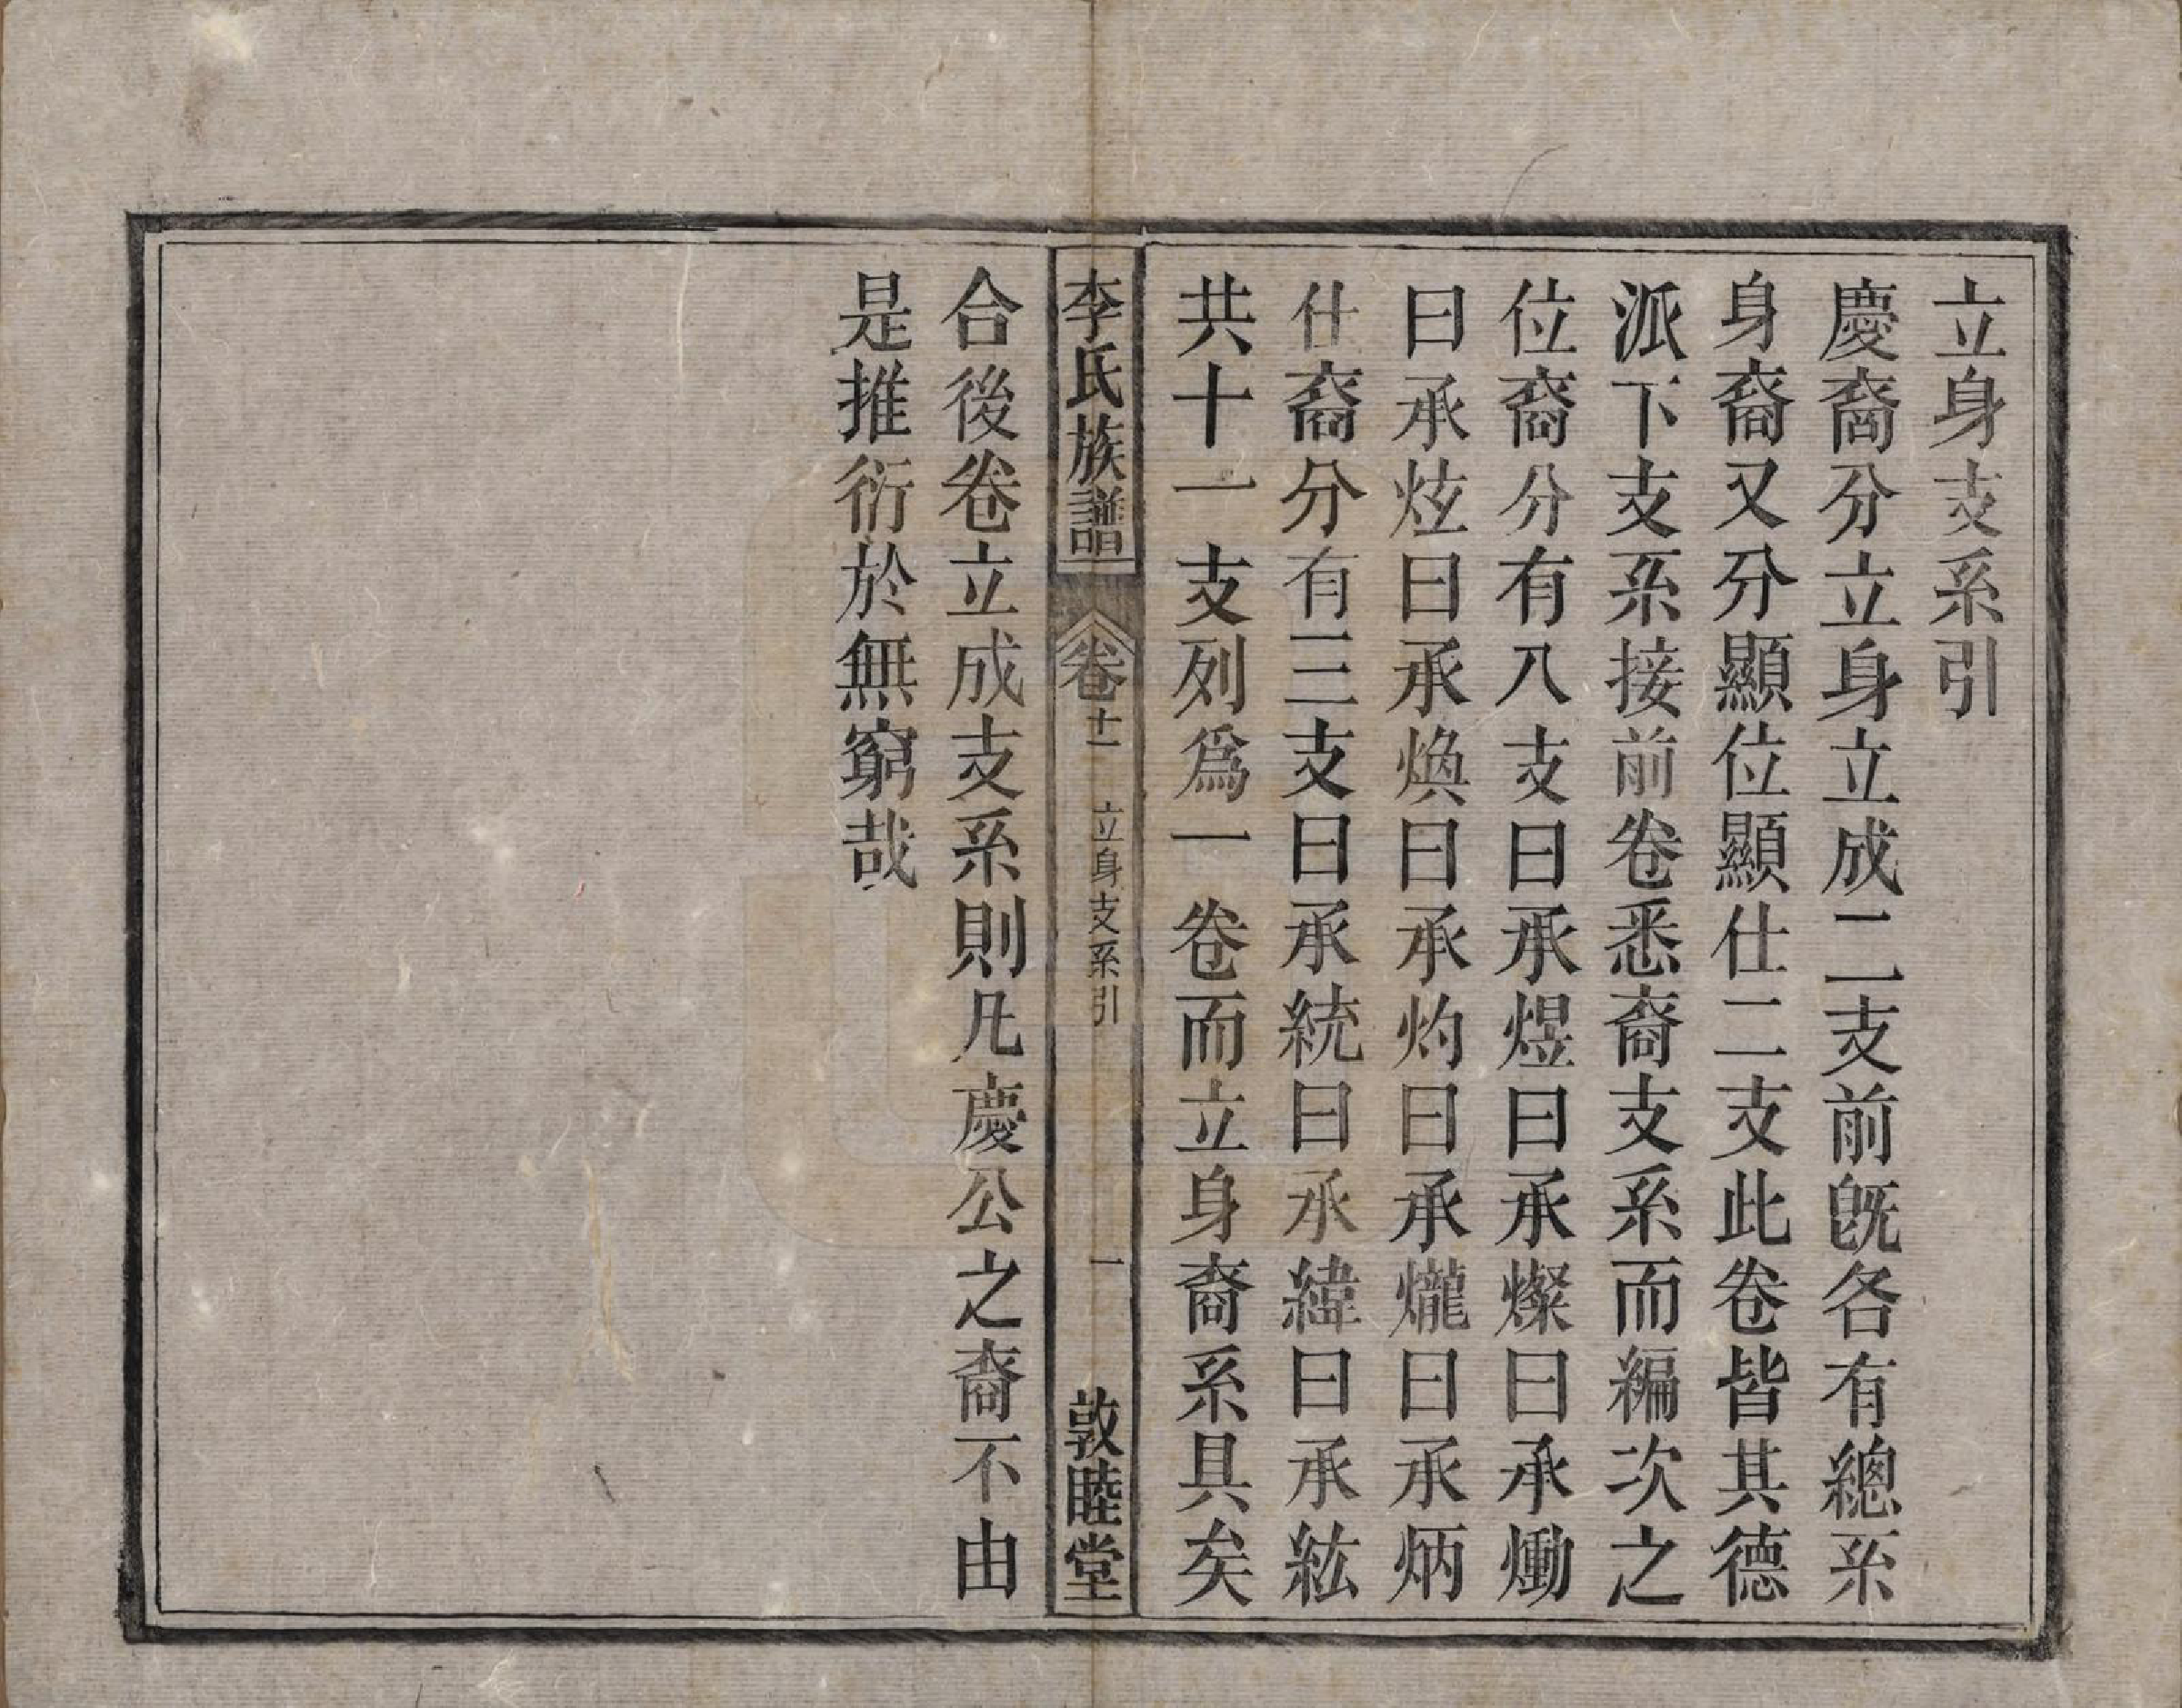 立身支系引
慶裔分立身立成二支前旣各有總系
身裔又分顯位顯仕二支此卷皆其德
派下支系接前卷悉裔支系而編次之
位裔分有八支曰承煜曰承燦曰承㷲
曰承炫曰承煥曰承灼曰承爖曰承炳
仕裔分有三支曰承統曰承緯曰承紘
共十一支列爲一卷而立身裔系具矣
李氏族譜
卷十一
立身支系引
一
敦睦堂
合後卷立成支系則凡慶公之裔不由
是推衍於無窮哉